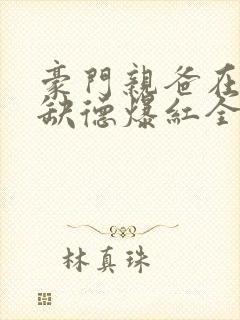 豪門親爸在
缺德爆紅全
林真珠